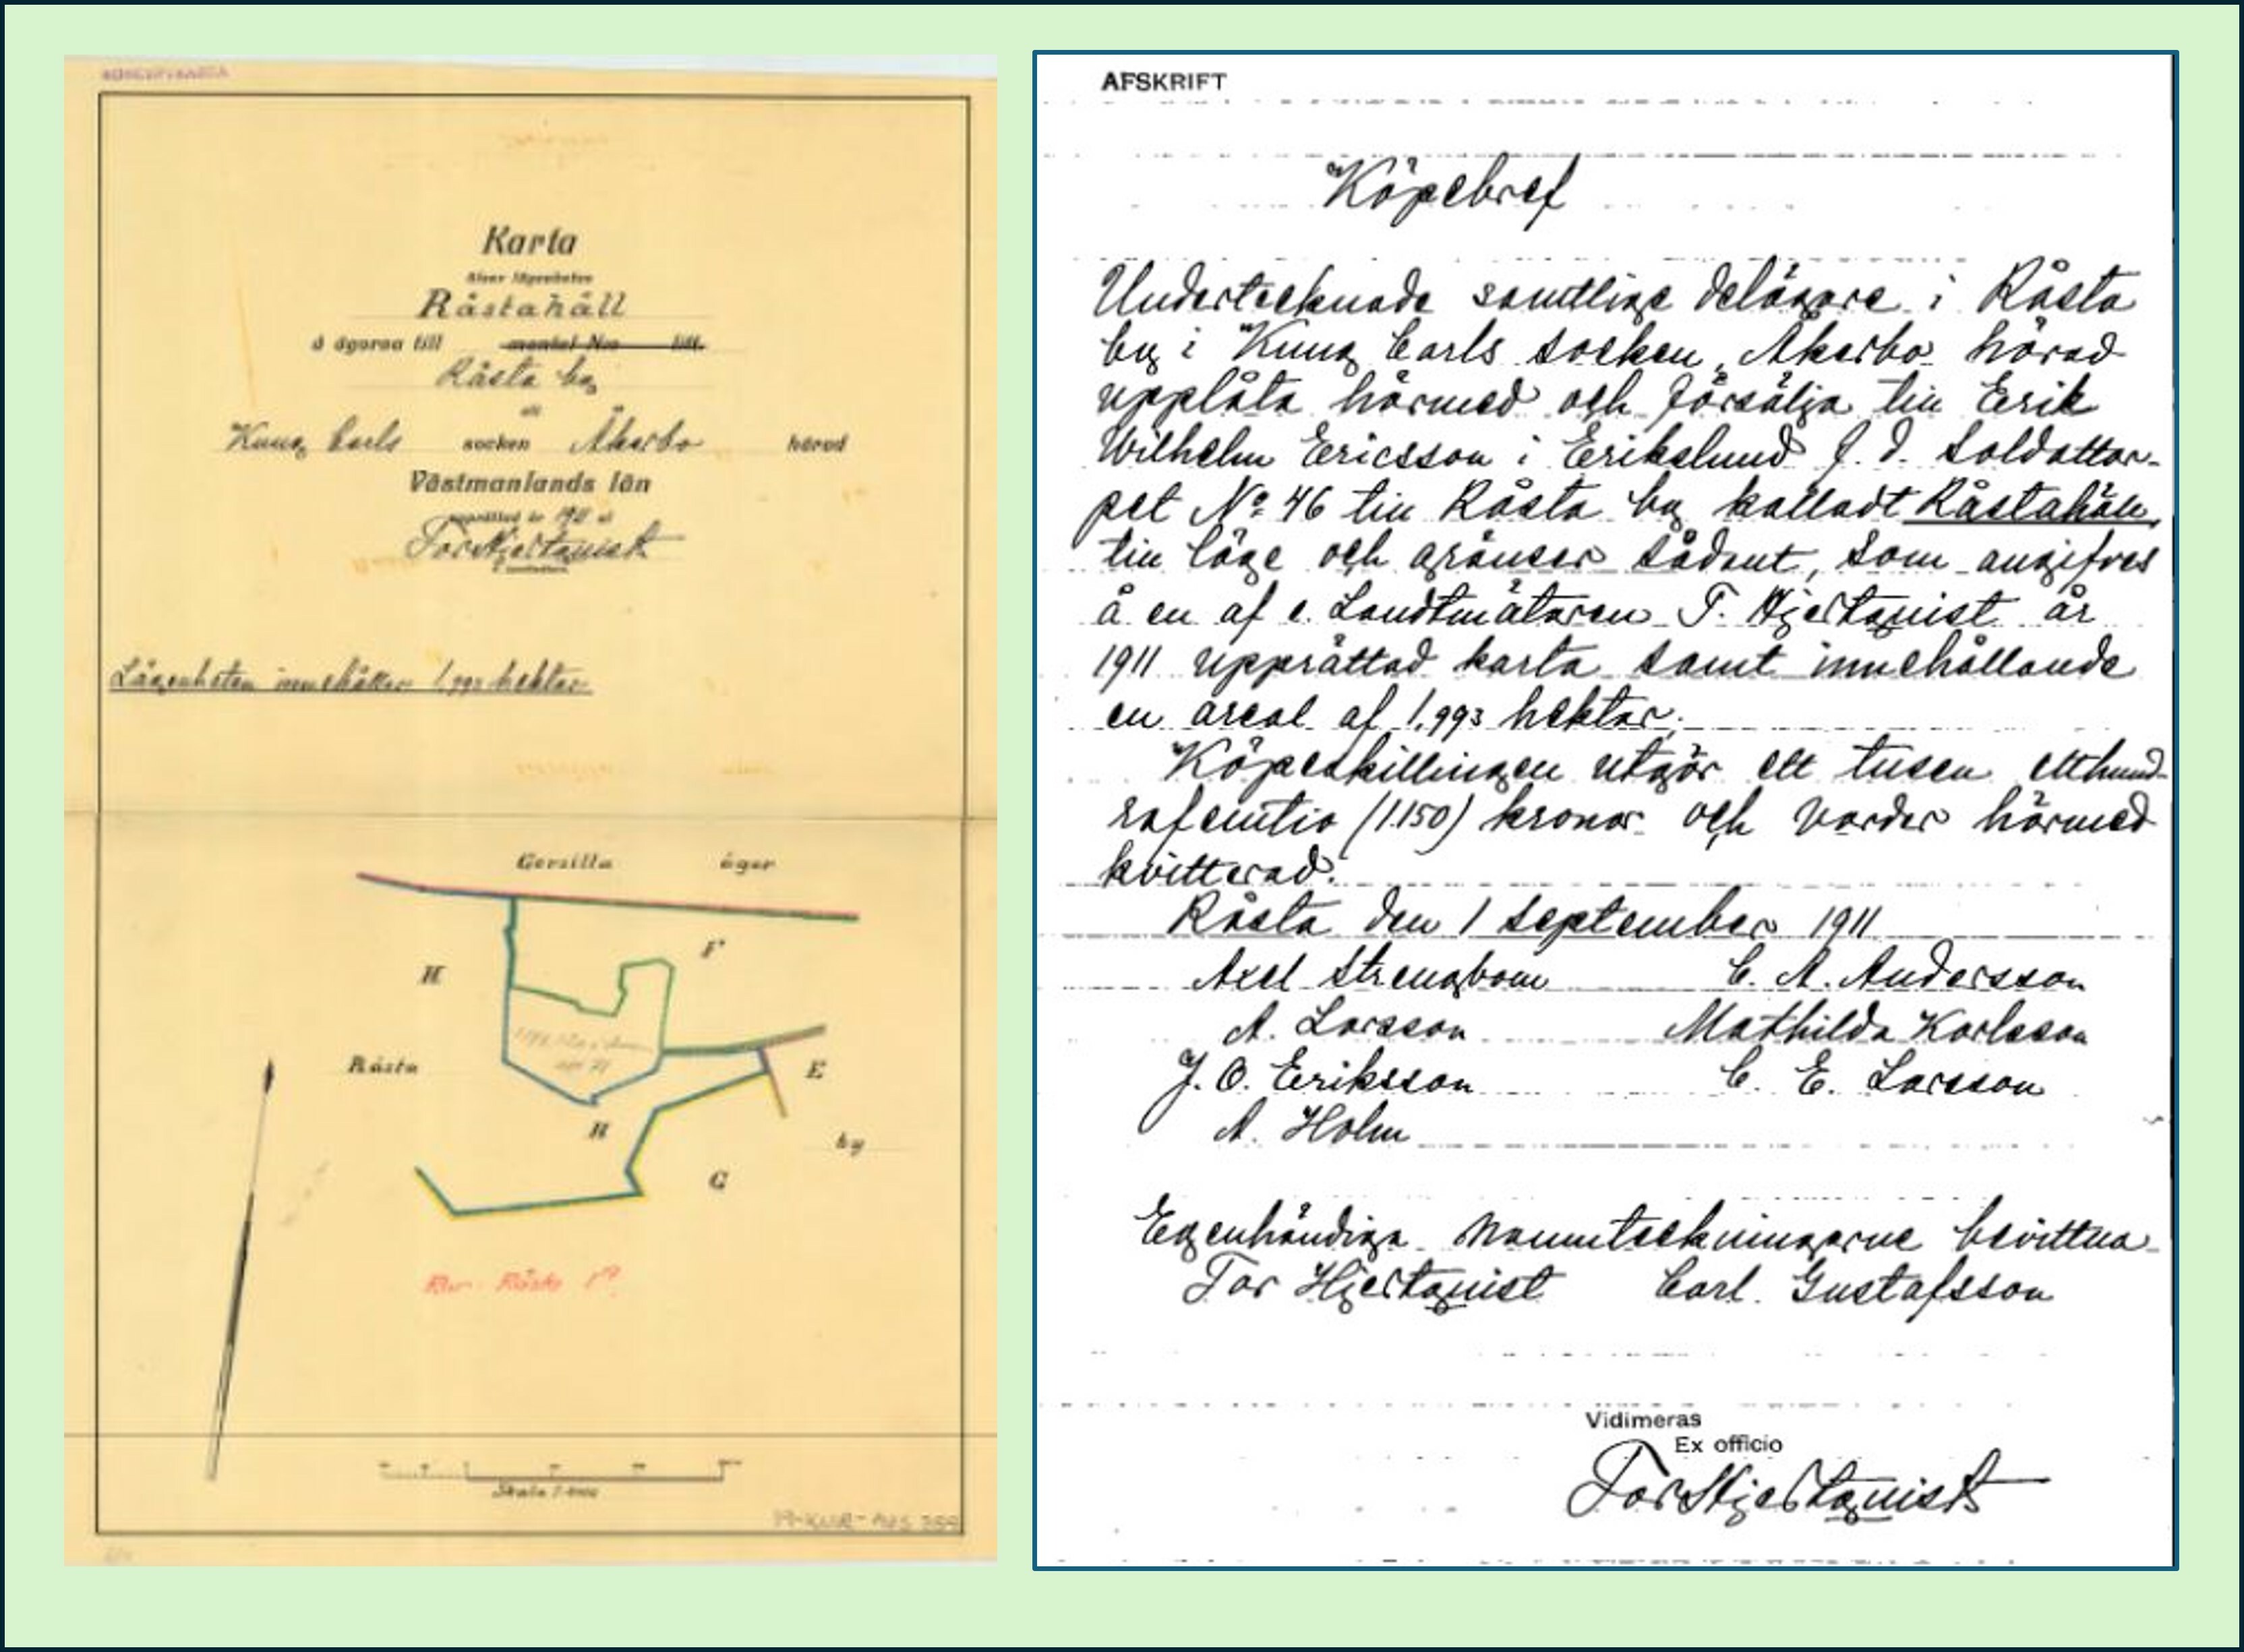 KONCEPTKARTA
Karta
öfver lägenheten
Råstahäll
å ägorna till mantal N:o litt.
Råsta by
uti
Kung Carls socken Åkerbo härad
Västmanlands län
upprättad år 1911 af
Tor Hjertquist
Lägenheten innehåller 1,993 hektar
Gersilla ägor
F
H
E
Råsta
H
by
G
Skala 1:4000
AFSKRIFT
Köpebref
Undertecknade samtlige delägare i Råsta
by i Kung Carls socken, Åkerbo härad
upplåta härmed och försälja till Erik
Wilhelm Ericsson i Erikslund f. d. Soldattor-
pet No 46 till Råsta by kalladt Råstahäll,
till läge och gränser sådant, som angifves
å en af e. Landtmätaren T. Hjertquist år
1911 upprättad karta samt innehållande
en areal af 1,993 hektar.
Köpeskillingen utgör ett tusen etthund-
rafemtio (1.150) kronor och varder härmed
kvitterad.
Råsta den 1 September 1911
Axel Strengbom C. A. Andersson
A. Larsson Mathilda Karlsson
J. O. Eriksson C. E. Larsson
A. Holm
Egenhändiga namnteckningarne bevittna
Tor Hjertquist Carl Gustafsson
Vidimeras
Ex officio
Tor Hjertquist